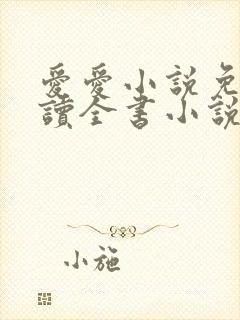 愛愛小說免
讀全書小說
小施